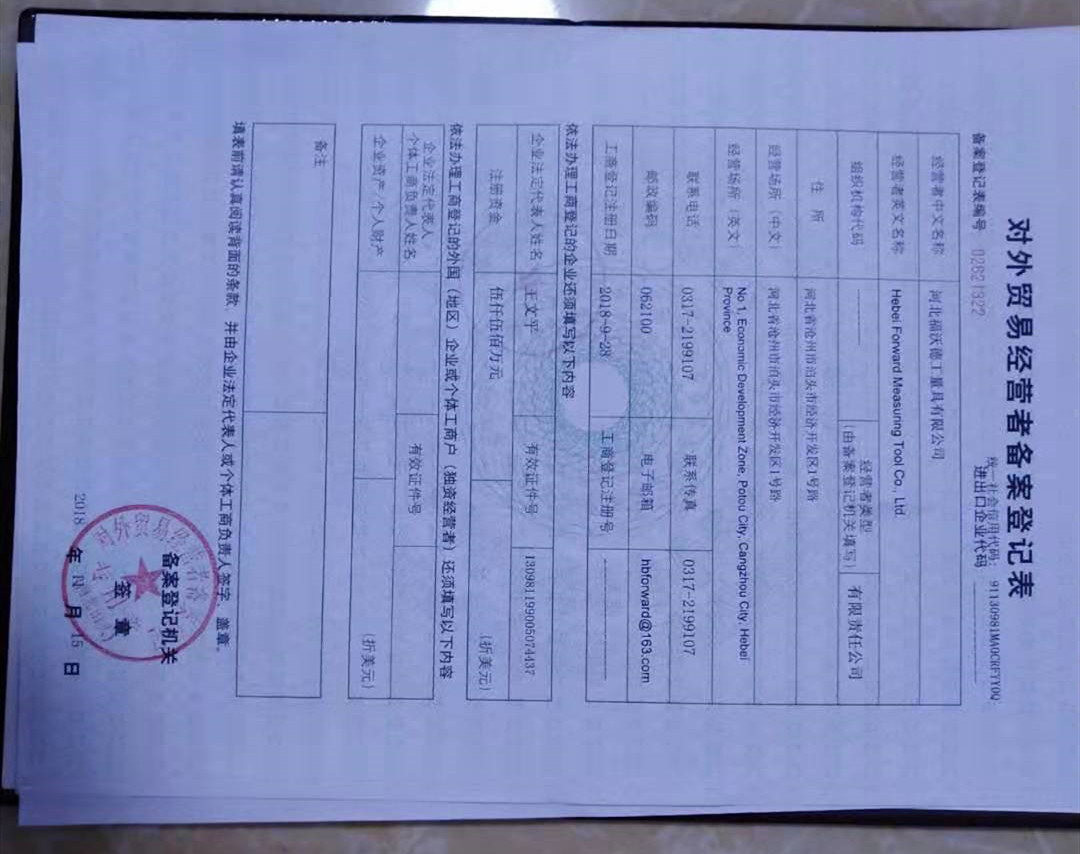 对外贸易经营者备案登记表
统一社会信用代码：91130981MA0CRFYY0Q
备案登记表编号 02821322 进出口企业代码
经营者中文名称 河北福沃德工量具有限公司
经营者英文名称 Hebei Forward Measuring Tool Co., Ltd.
组织机构代码 ———— 经营者类型 有限责任公司
(由备案登记机关填写)
住 所 河北省沧州市泊头市经济开发区1号路
经营场所（中文） 河北省沧州市泊头市经济开发区1号路
经营场所（英文） No.1, Economic Development Zone, Potou City, Cangzhou City, Hebei
Province
联系电话 0317-2199107 联系传真 0317-2199107
邮政编码 062100 电子邮箱 hbforward@163.com
工商登记注册日期 2018-9-28 工商登记注册号 ————
依法办理工商登记的企业还须填写以下内容
企业法定代表人姓名 王文平 有效证件号 130981199005074437
注册资金 伍仟伍佰万元 (折美元)
依法办理工商登记的外国（地区）企业或个体工商户（独资经营者）还须填写以下内容
企业法定代表人
个体工商负责人姓名 有效证件号
企业资产/个人财产 (折美元)
备注
填表前请认真阅读背面的条款，并由企业法定代表人或个体工商负责人签字、盖章。
备案登记机关
签 章
2018 年 月 15 日